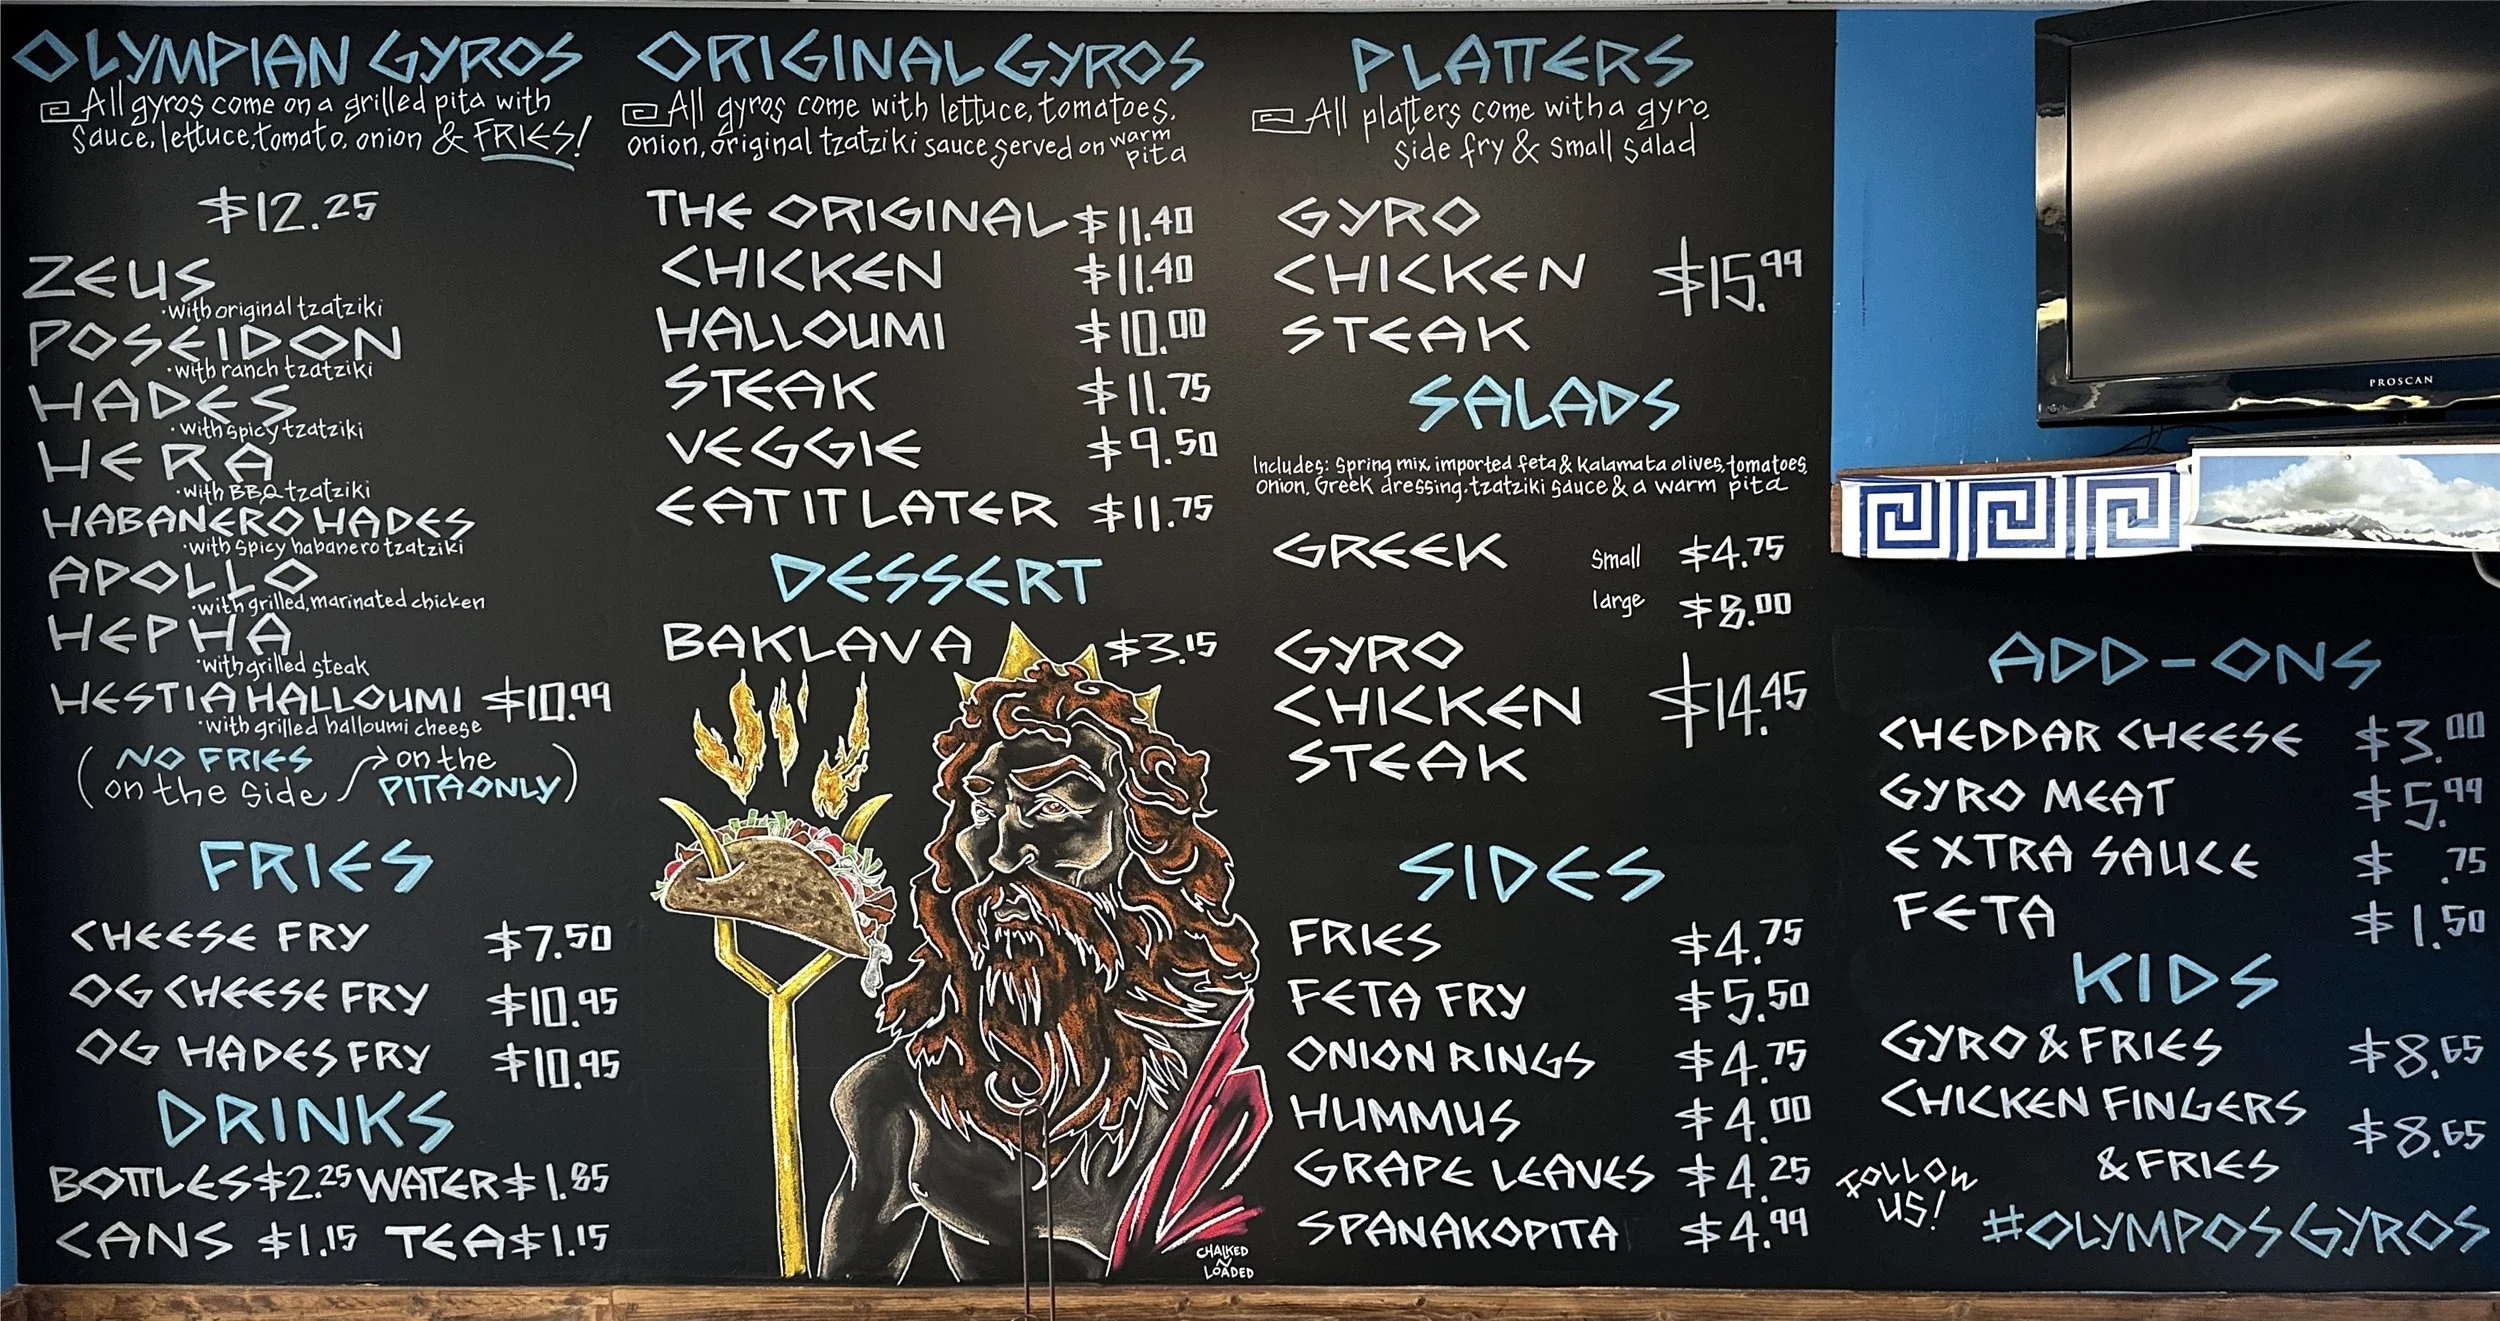 OLYMPIAN GYROS
All gyros come on a grilled pita with
sauce, lettuce, tomato, onion & FRIES!
$12.25
ZEUS
•with original tzatziki
POSEIDON
•with ranch tzatziki
HADES
•with spicy tzatziki
HERA
•with BBQ tzatziki
HABANERO HADES
•with spicy habanero tzatziki
APOLLO
•with grilled, marinated chicken
HEPHA
•with grilled steak
HESTIA HALLOUMI $10.99
•with grilled halloumi cheese
(NO FRIES on the
on the side PITA ONLY)
FRIES
CHEESE FRY $7.50
OG CHEESE FRY $10.95
OG HADES FRY $10.95
DRINKS
BOTTLES $2.25 WATER $1.85
CANS $1.15 TEA $1.15
ORIGINAL GYROS
All gyros come with lettuce, tomatoes,
onion, original tzatziki sauce served on warm
pita
THE ORIGINAL $11.40
CHICKEN $11.40
HALLOUMI $10.00
STEAK $11.75
VEGGIE $9.50
EAT IT LATER $11.75
DESSERT
BAKLAVA $3.15
CHALKED
N
LOADED
PLATTERS
All platters come with a gyro,
side fry & small salad
GYRO
CHICKEN $15.99
STEAK
SALADS
Includes: Spring mix, imported feta & kalamata olives, tomatoes,
onion, Greek dressing, tzatziki sauce & a warm pita
GREEK small $4.75
large $8.00
GYRO
CHICKEN $14.45
STEAK
SIDES
FRIES $4.75
FETA FRY $5.50
ONION RINGS $4.75
HUMMUS $4.00
GRAPE LEAVES $4.25
SPANAKOPITA $4.99
PROSCAN
ADD-ONS
CHEDDAR CHEESE $3.00
GYRO MEAT $5.99
EXTRA SAUCE $ .75
FETA $1.50
KIDS
GYRO & FRIES $8.65
CHICKEN FINGERS
& FRIES $8.65
FOLLOW
US!
#OLYMPOSGYROS